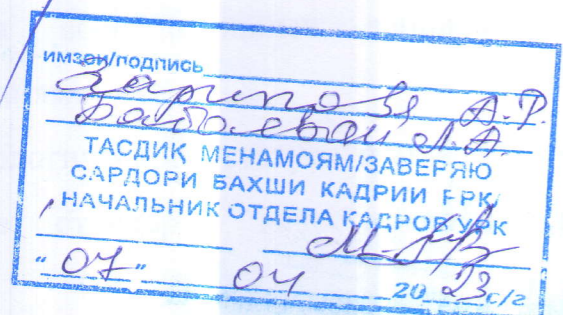 имзои/подпись
Зарипова А.Р.
Бабаевой Л.А.
ТАСДИҚ МЕНАМОЯМ/ЗАВЕРЯЮ
САРДОРИ БАХШИ КАДРИИ РРК/
НАЧАЛЬНИК ОТДЕЛА КАДРОВ УРК
"07" 04 2023 с/г